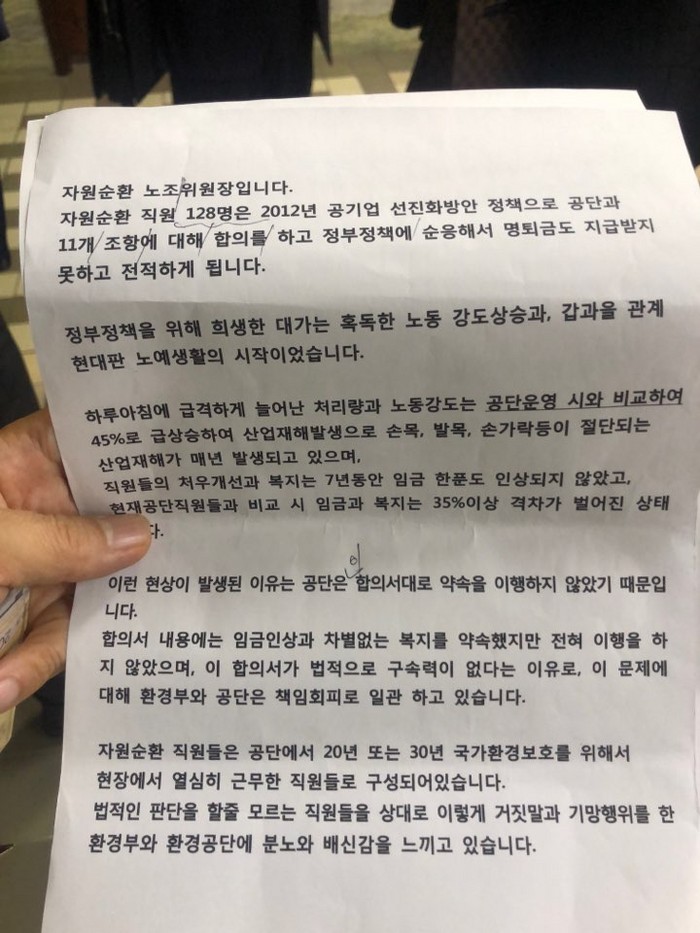 자원순환 노조위원장입니다.
자원순환 직원 128명은 2012년 공기업 선진화방안 정책으로 공단과
11개 조항에 대해 합의를 하고 정부정책에 순응해서 명퇴금도 지급받지
못하고 전적하게 됩니다.
정부정책을 위해 희생한 대가는 혹독한 노동 강도상승과, 갑과을 관계
현대판 노예생활의 시작이었습니다.
하루아침에 급격하게 늘어난 처리량과 노동강도는 공단운영 시와 비교하여
45%로 급상승하여 산업재해발생으로 손목, 발목, 손가락등이 절단되는
산업재해가 매년 발생되고 있으며,
직원들의 처우개선과 복지는 7년동안 임금 한푼도 인상되지 않았고,
현재공단직원들과 비교 시 임금과 복지는 35%이상 격차가 벌어진 상태
다.
이
이런 현상이 발생된 이유는 공단은 합의서대로 약속을 이행하지 않았기 때문입
니다.
합의서 내용에는 임금인상과 차별없는 복지를 약속했지만 전혀 이행을 하
지 않았으며, 이 합의서가 법적으로 구속력이 없다는 이유로, 이 문제에
대해 환경부와 공단은 책임회피로 일관 하고 있습니다.
자원순환 직원들은 공단에서 20년 또는 30년 국가환경보호를 위해서
현장에서 열심히 근무한 직원들로 구성되어있습니다.
법적인 판단을 할줄 모르는 직원들을 상대로 이렇게 거짓말과 기망행위를 한
환경부와 환경공단에 분노와 배신감을 느끼고 있습니다.